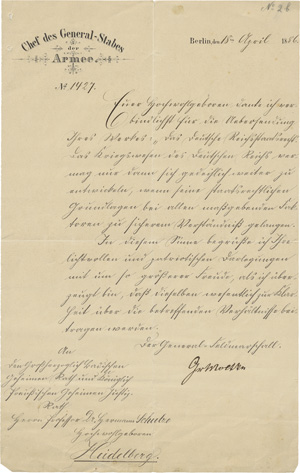 No 26
Chef des General-Stabes
der
Armee.
Berlin, den 15ten April 1886
No 1427.
Euer Hochwohlgeboren danke ich ver-
bindlichst für die Uebersendung
Ihres Werkes: „Das deutsche Reichsstaatsrecht.
Das Kriegswesen des Deutschen Reichs ver-
mag nur dann sich gedeihlich weiter zu
entwickeln, wenn seine staatsrechtlichen
Grundlagen bei allen maßgebenden Fak-
toren zu sicherem Verständniß gelangen.
In diesem Sinne begrüße ich Ihre
lichtvollen und patriotischen Darlegungen
mit um so größerer Freude, als ich über-
zeugt bin, daß dieselben wesentlich zur Klar-
heit über die betreffenden Verhältnisse bei-
tragen werden.
Der General-Feldmarschall.
Gr Moltke
An
den Großherzoglich Badischen
Geheimen Rath und Königlich
Preußischen Geheimen Justiz-
Rath
Herrn Professor Dr. Hermann Schulze
Hochwohlgeboren
Heidelberg.